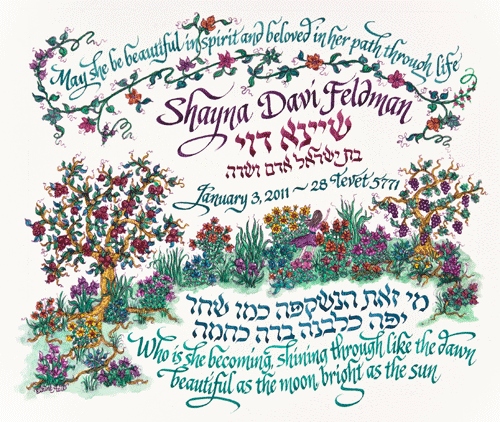 May she be beautiful in spirit and beloved in her path through life
Shayna Davi Feldman
שיינא דוי
בת ישראל אדם ושדה
January 3, 2011 ~ 28 Tevet 5771
מי זאת הנשקפה כמו שחר
יפה כלבנה ברה כחמה
Who is she becoming, shining through like the dawn
beautiful as the moon, bright as the sun